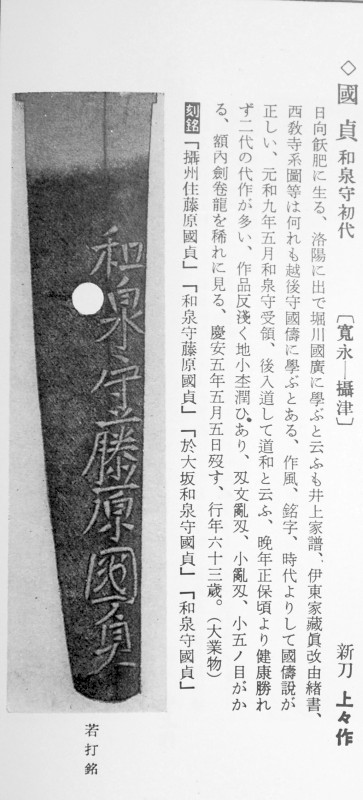 ◇國貞 和泉守初代 〔寬永―攝津〕 新刀 上々作
日向飫肥に生る、洛陽に出で堀川國廣に學ぶと云ふも井上家譜、伊東家藏眞改由緒書、
西敎寺系圖等は何れも越後守國儔に學ぶとある、作風、銘字、時代よりして國儔說が
正しい、元和九年五月和泉守受領、後入道して道和と云ふ、晚年正保頃より健康勝れ
ず二代の代作が多い、作品反淺く地小杢潤ひあり、刄文亂刄、小亂刄、小五ノ目がか
る、額內劍卷龍を稀れに見る、慶安五年五月五日歿す、行年六十三歲。（大業物）
刻銘「攝州住藤原國貞」「和泉守藤原國貞」「於大坂和泉守國貞」「和泉守國貞」
和泉守藤原國貞
若打銘